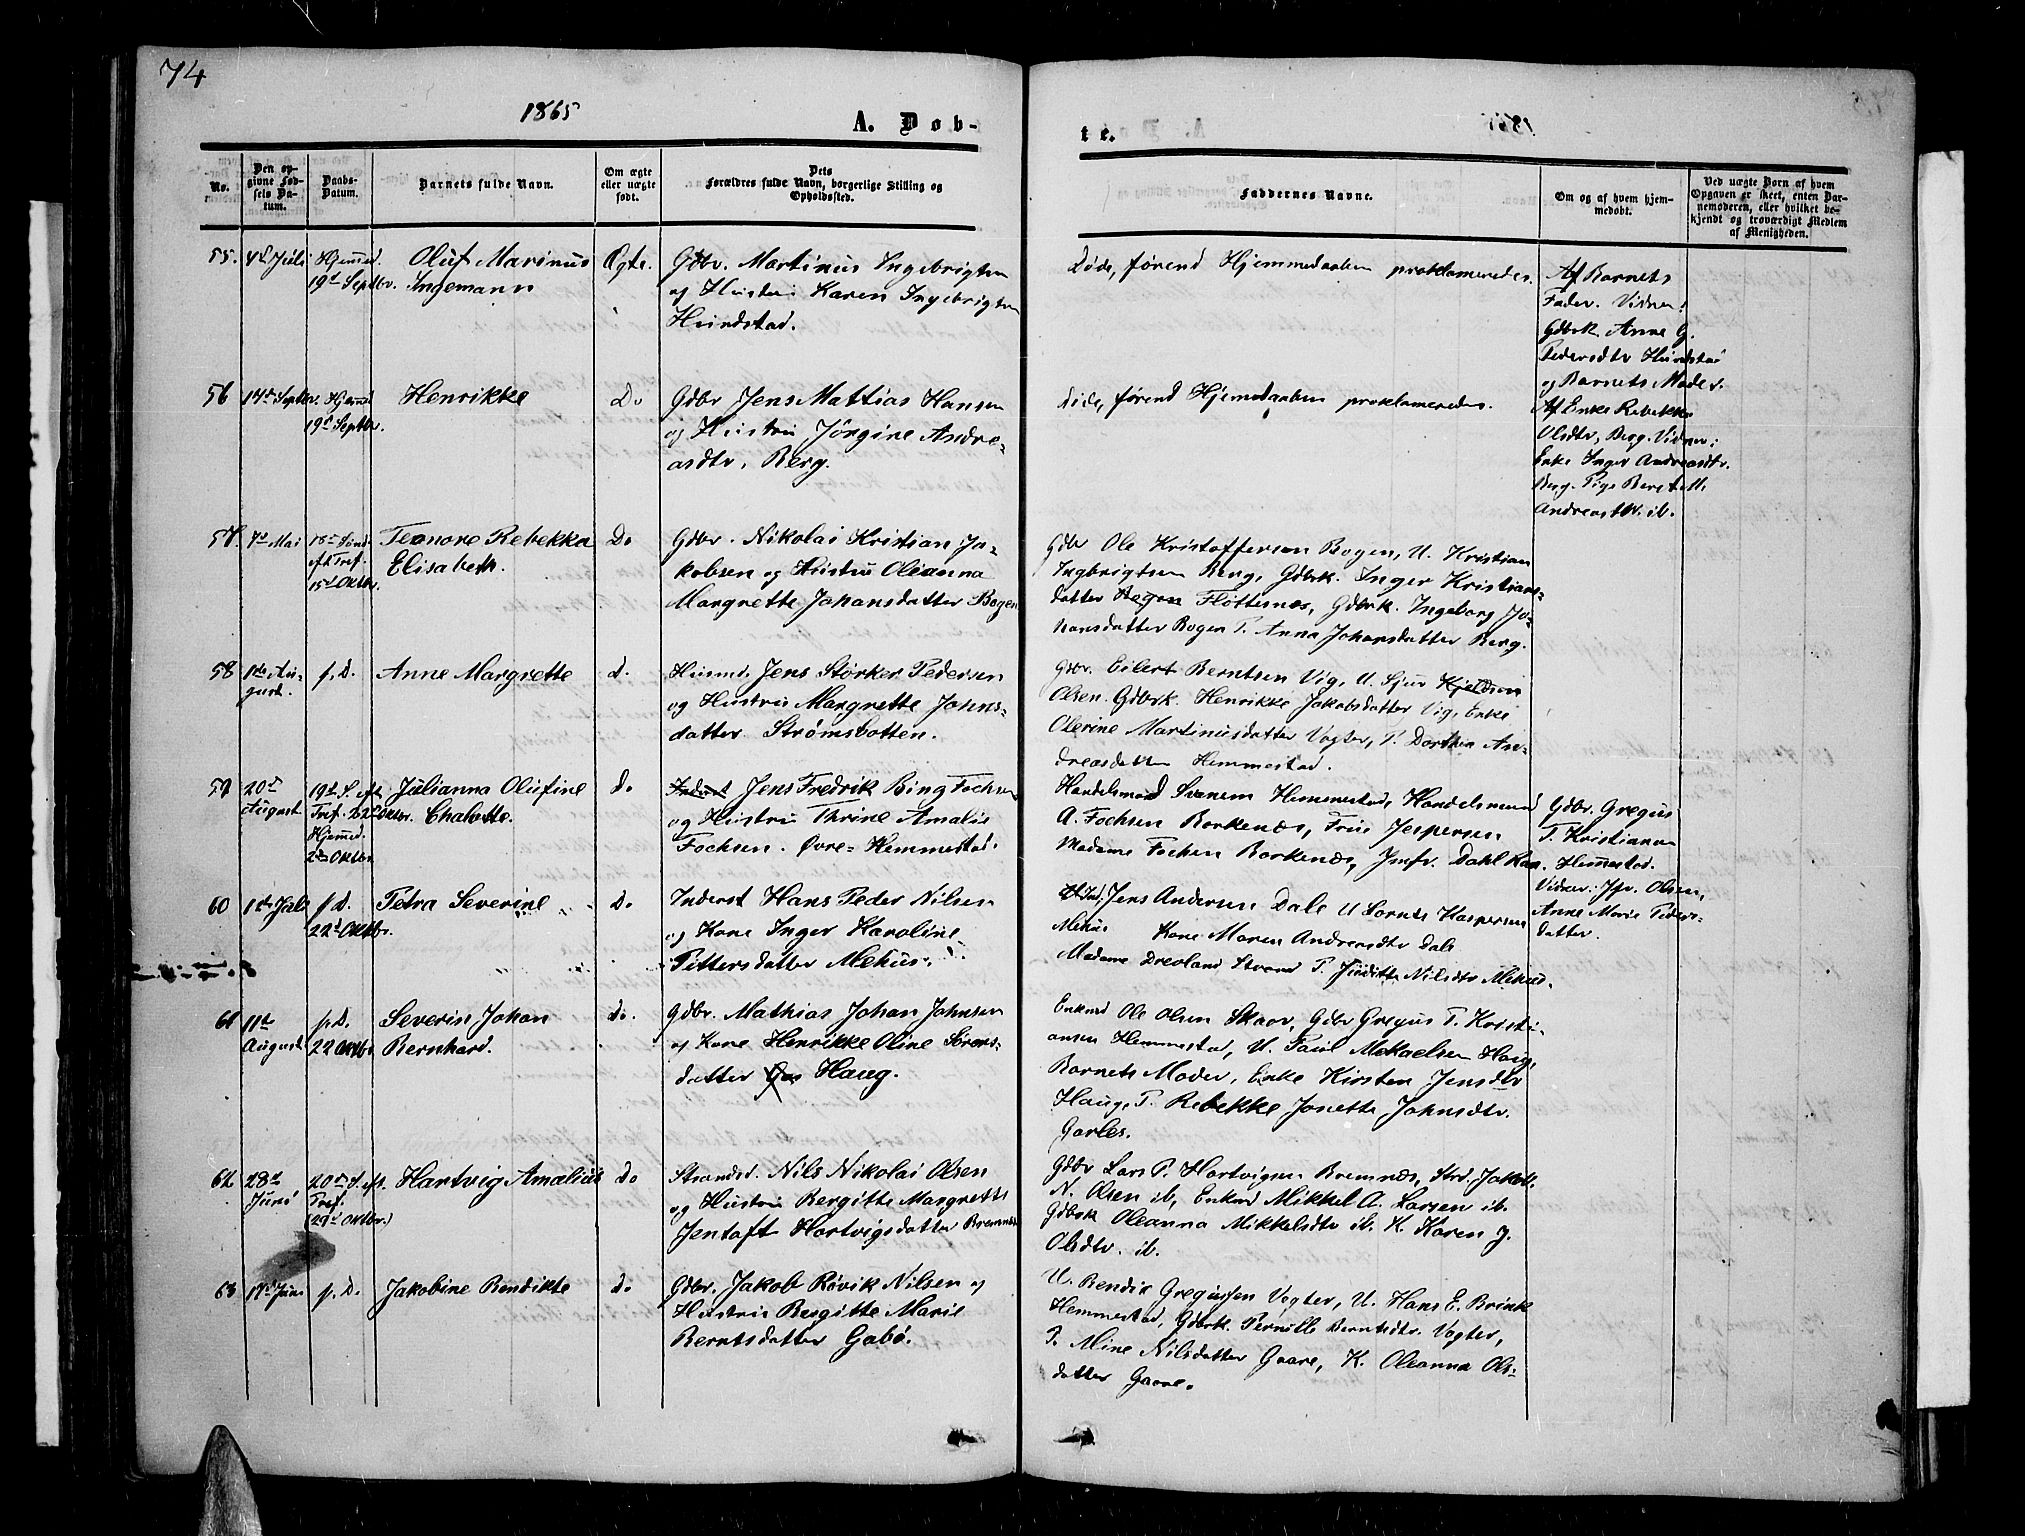 74
1865
A. Døb-
te.
No.
Den opgivne Fødsels Datum.
Daabs-Datum.
Barnets fulde Navn.
Om ægte eller uægte født.
Dets Forældres fulde Navn, borgerlige Stilling og Opholdssted.
Faddernes Navne.
Om og af hvem hjemmedøbt.
Ved uægte Børn af hvem Opgaven er skeet, enten Barnemoderen, eller hvilket bekjendt og troværdigt Medlem af Menigheden.
55. 4de Juli Hjemmed. 19de Septbr. Oluf Marinus Ingemann Ægte.
Gdbr. Martinus Ingebrigtsen
og Hustru Karen Ingebrigtsn
Hundstad.
Døde, førend Hjemmedaaben proklameredes.
Af Barnets
Fader. Vidner:
Gdbrk. Anne G.
Pedersdtr Hundstad
og Barnets Moder.
56 14de Septbr. Hjemmd 19d Septbr. Henrikke Do
Gdbr Jens Mattias Hansen
og Hustru Jørgine Andre-
asdtr, Berg.
Døde, førend Hjemmedaaben proklameredes.
Af Enke Rebekka
Olsdtr, Berg. Vidner:
Enke Inger Andreasdtr.
Berg. Pige Beret M.
Andreasdtr. ib.
57. 7de Mai 18de Sønd. eft Tref. 15d Oktbr. Leonore Rebekka Elisabeth. Do
Gdbr. Nikolai Kristian Ja-
kobsen og Hustru Oleanna
Margrette Johansdatter Bogen
Gdbr Ole Kristoffersen Bogen, U. Kristian
Ingbrigtsen Berg, Gdbrk. Inger Kristians-
datter Bogen Fløtternæs, Gdbrk. Ingeborg Jo-
hansdatter Bogen P. Anna Johansdatter Berg.
58 1ste August. s. D. Anne Margrette d.
Husmd. Jens Størker Pedersen
og Hustru Margrette Johns-
datter. Strømsbotten.
Gdbr. Eilert Berntsen Vig, U. Sjur Kjeldsen
Olsen. Gdbrk. Henrikke Jakobsdatter Vig, Enke
Olerine Martinusdatter Vogter, P. Dorthea An-
dreasdatter Hemmestad.
59 20de August 19d S. eft. Tref. 22d Oktbr. Hjemmed. 2den Oktbr Julianna Olufine Chalotte. do
Inderst Jens Fredrik Bing Fochsen
og Hustru Thrine Amalie
Fochsen. Øvre-Hemmestad.
Handelsmand Svanem Hemmestad, Handelsmand
A. Fochsen Borkenæs, Frue Jespersen
Madame Fochsen Borkenæs, Jmfr. Dahl
Gdbr. Gregus
T. Kristiansen
Hemmestad.
Vidner: Jfr. Olsen,
Anne Marie Peders-
datter.
60 1ste Juli s. D. 22d Oktbr. Petra Severine Do
Inderst Hans Peder Nilsen
og Kone Inger Karoline
Pittersdatter Mehus.
Ind. Jens Andersen Dale U Sornts Kaspersen
Mehus Kone Maren Andreasdtr Dale
Madame Dreoland Strand P. Juditte Nilsdtr Mehus.
61 11te August s. D. 22 Oktbr Severin Johan Bernhard. do.
Gdbr. Mathias Johan Johnsen
og Kone Henrikke Oline Sørens-
datter Haug.
Enkmd Ole Olsen Skaar, Gdbr Gregus T. Kristi-
ansen Hemmestad, U. Paul Mekaelsen Haug,
Barnets Moder, Enke Kirsten Jensdtr
Haug, P. Rebekke Jonette Johnsdtr.
Garles.
62 28de Juni 20de S. eft. Tref. (29d Oktbr.) Hartvig Amalius do
Strandsd. Nils Nikolai Olsen
og Hustru Bergitte Margrette
Jentoft Hartvigsdatter Bremnes
Gdbr Lars P. Hartvigsen Bremnæs, Strd. Jakob
N. Olsen ib, Enkmd Mikkel A. Larsen ib.
Gdbrk Oleanna Mikkelsdtr ib. K. Karen J.
Olsdtr. ib.
63 17d Juni s. D. Jakobine Bendikte do
Gdbr. Jakob Røvik Nilsen og
Hustru Bergitte Marie
Berntsdatter Gabø.
U. Bendix Gregussen Vogter, U. Hans E. Brink
Hemmestad, Gdbrk. Pernille Berntsdtr. Vogter,
P. Mine Nilsdatter Gaare, K. Oleanna Ols-
datter Gaare.